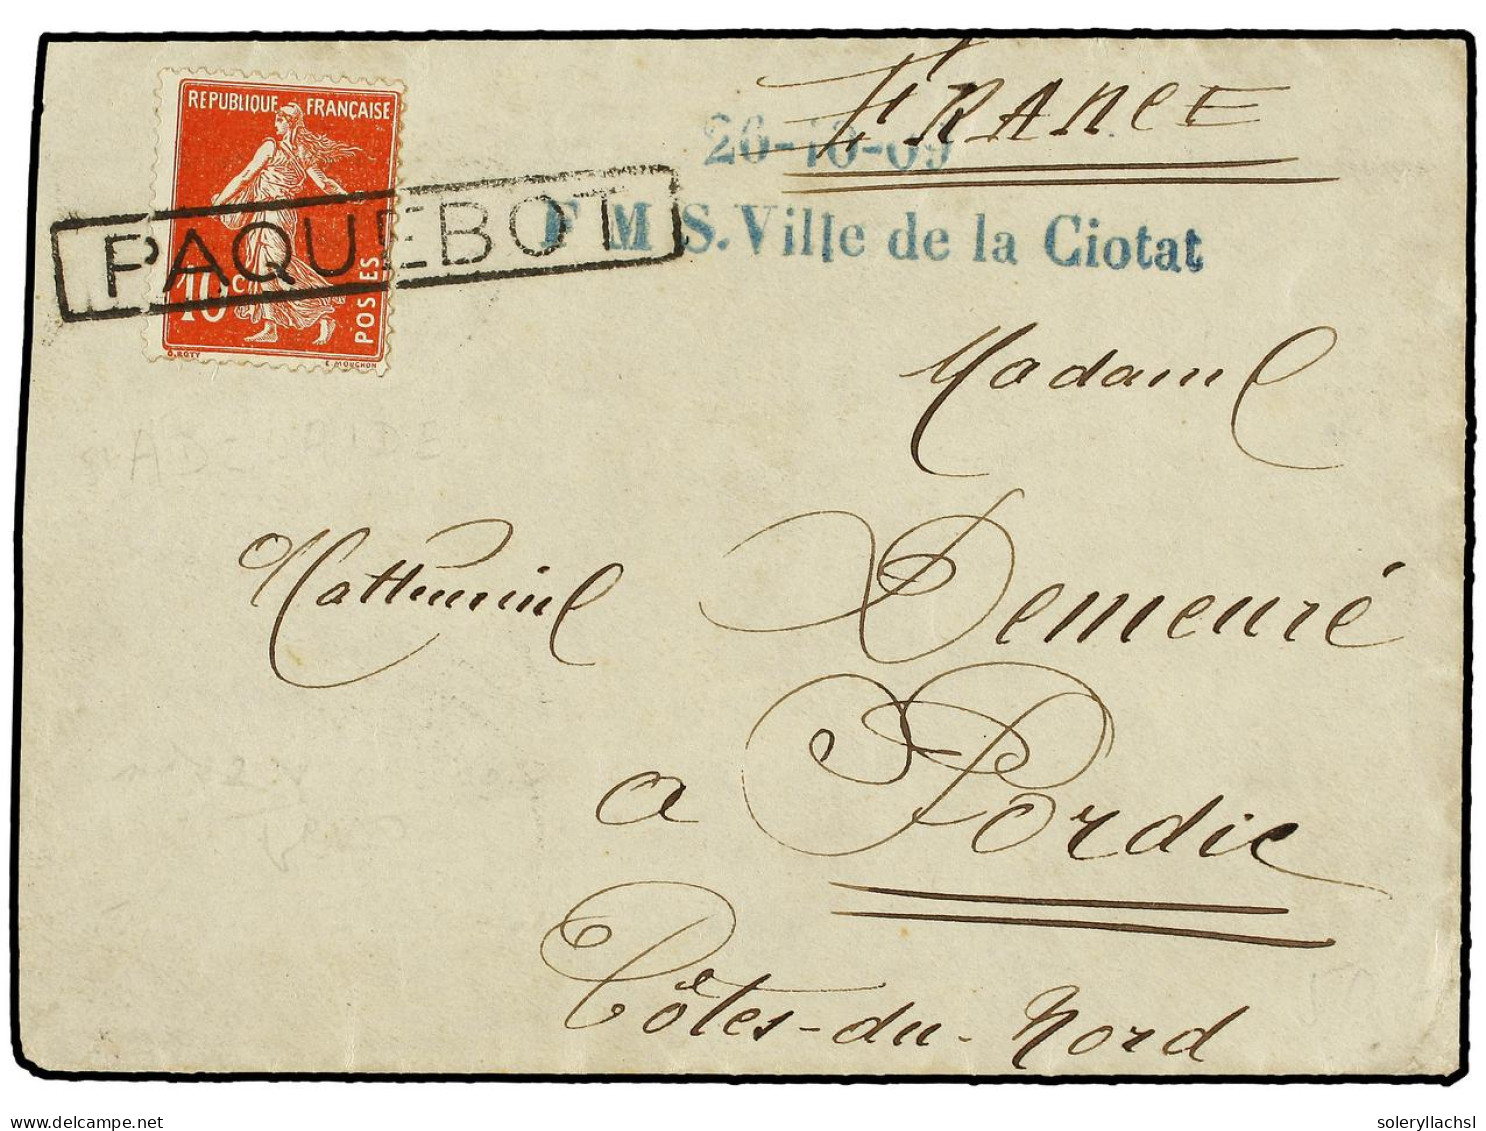 FRANCE
26-10-09
F M S. Ville de la Ciotat
REPUBLIQUE FRANÇAISE
PAQUEBOT
10 c
POSTES
O. ROTY
E. MOUCHON
Madame
ADELAIDE
Demeuré
a Pordic
Côtes-du-Nord
delcampe.net
soleryllachsl